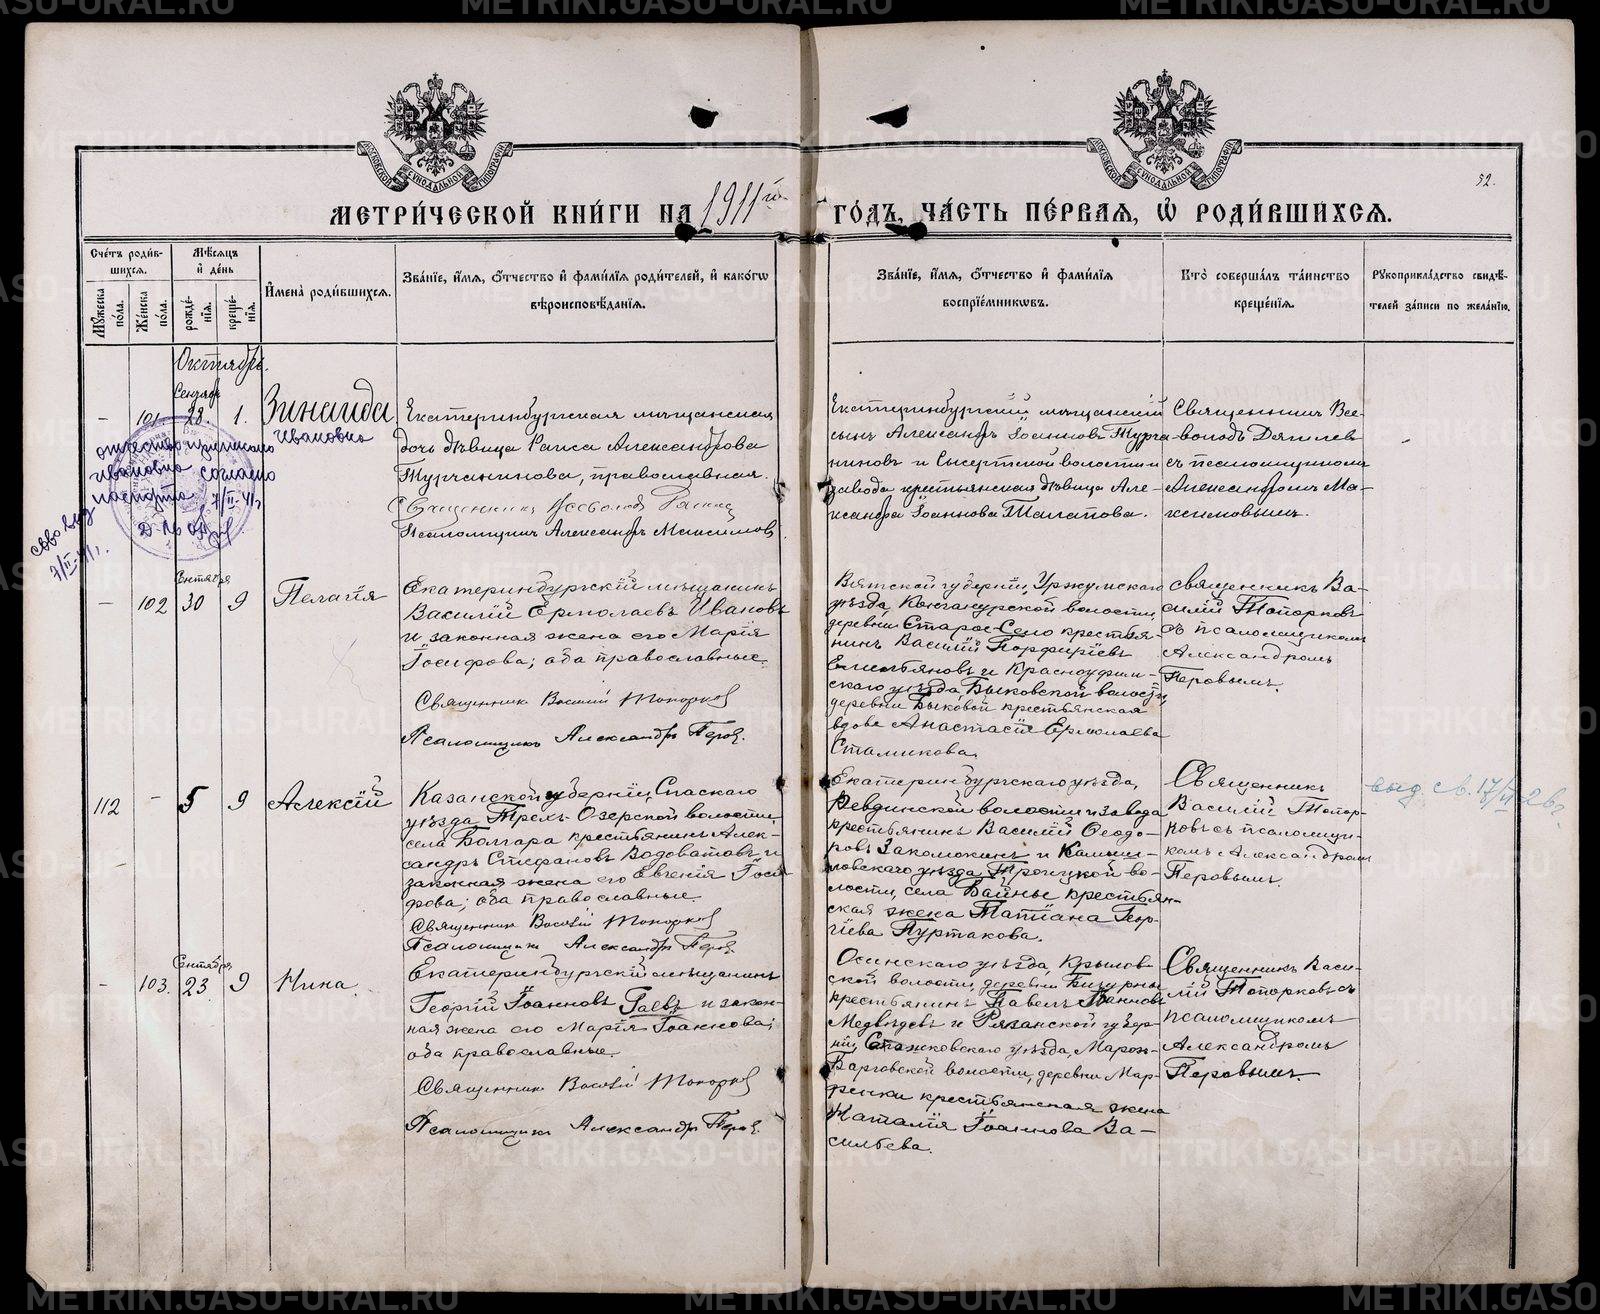 МОСКОВСКОЙ СѴНОДАЛЬНОЙ ТИПОГРАФІИ
МОСКОВСКОЙ СѴНОДАЛЬНОЙ ТИПОГРАФІИ
52.
МЕТРИ́ЧЕСКОЙ КНИ́ГИ НА 1911й ГО́ДЪ, ЧА́СТЬ ПЕ́РВАЯ, Ѡ РОДИ́ВШИХСЯ.
Сче́тъ роди́вшихся.
Мꙋ́жеска по́ла.
Же́нска по́ла.
Мѣ́сяцъ и҆ де́нь
рожде́нїя.
креще́нїя.
И҆мена̀ роди́вшихся.
Зва́нїе, и҆́мя, ѻ҆́тчество и҆ фами́лїя роди́телей, и҆ како́гѡ
вѣроисповѣ́данїя.
Зва́нїе, и҆́мя, ѻ҆́тчество и҆ фами́лїя
воспрїе́мникѡвъ.
Кто̀ соверша́лъ та́инство
креще́нїя.
Рꙋкоприкла́дство свидѣ́-
телей за́писи по жела́нїю.
Октябрь.
Сентябр
- 101 28. 1.
Зинаида
Ивановна
отчество
Ивановна согласно
паспорта 7/II-41г
7/II-41г.
Екатеринбургская мѣщанская
дочь дѣвица Раиса Александрова
Турчанинова, православная.
Священникъ
Псаломщикъ Александръ Максимов.
Екатеринбургскій мѣщанскій
сынъ Александръ Іоанновъ Турча-
ниновъ и Сысертской волости и
завода крестьянская дѣвица Але-
ксандра Іоаннова Талапова.
Священникъ Все-
володъ Дягилев
съ псаломщикомъ
Александромъ Ма-
ксимовымъ.
-
Сентября
- 102 30 9
Пелагія
Екатеринбургскій мѣщанинъ
Василій Ермолаевъ Ивановъ
и законная жена его Марія
Іосифова; оба православные.
Священникъ Василій Топорков
Псаломщикъ Александръ Перов.
Вятской губерніи, Уржумскаго
уѣзда, волости,
деревни Старое-Село крестья-
нинъ Василій Порфиріевъ
Емельяновъ и Красноуфим-
скаго уѣзда, Быковской волости,
деревни Быковой крестьянская
вдова Анастасія Ермолаева
Стамикова.
Священникъ Ва-
силій Топорковъ
съ псаломщикомъ
Александромъ
Перовымъ.
112 - 5 9
Алексій
Казанской губерніи, Спаскаго
уѣзда Трехъ-Озерской волости,
села Болгара крестьянинъ Алек-
сандръ Стефановъ Водоватовъ и
законная жена его Евгенія Іоси-
фова; оба православные.
Священникъ Василій Топорков
Псаломщикъ Александръ Перов.
Екатеринбургскаго уѣзда,
Ревдинской волости и завода
крестьянинъ Василій Ѳеодо-
ровъ Закомокинъ и Камыш-
ловскаго уѣзда, Троицкой во-
лости, села крестьян-
ская жена Татіана Геор-
гіева Пуртакова.
Священникъ
Василій Топор-
ковъ съ псаломщи-
комъ Александромъ
Перовымъ.
выд св. 17/VI-26г.
Сентября
- 103. 23 9
Нина.
Екатеринбургскій мѣщанинъ
Георгій Іоанновъ Гаевъ и закон-
ная жена его Марія Іоаннова;
оба православные.
Священникъ Василій Топорков
Псаломщикъ Александръ Перов.
Осинскаго уѣзда, Крылов-
ской волости, деревни
крестьянинъ Павелъ Іоанновъ
Медвѣдевъ и Рязанской губер-
ніи, уѣзда,
волости, деревни Мар-
крестьянская жена
Наталія Іоаннова Ва-
сильева.
Священникъ Васи-
лій Топорковъ съ
псаломщикомъ
Александромъ
Перовымъ.
METRIKI.GASO-URAL.RU